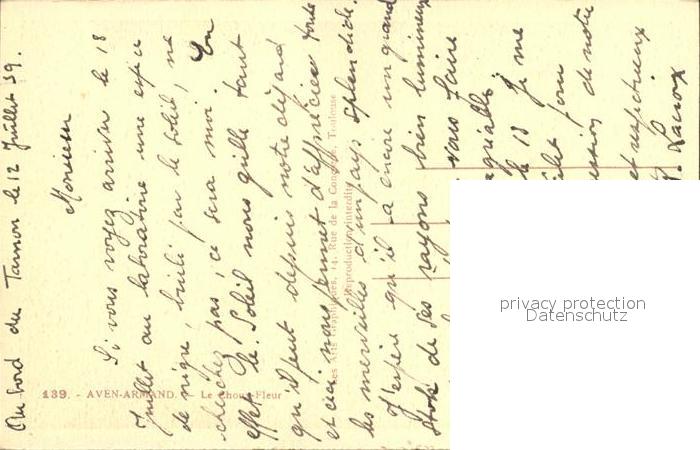 Au bord du Tarnon le 12 Juillet 39.
Monsieur
Si vous voyez arriver le 18
Juillet au laboratoire une espèce
de nègre, bruli par le soleil, ne
cherchez pas, ce sera moi. En
effet le Soleil nous grille tant
qu'il peut depuis notre départ
et ceci nous permet d'apprécier toute
les merveilles d'un pays splendide.
J'espère qu'il a encore un grand
stock de ses rayons bien lumineux
vous faire
agréable
le 18 Je me
pour
de notre
et respectueux
Lacroix
139. - AVEN-ARMAND. - Le Chou-Fleur
Les Arts Graphiques, 14, Rue de la Concorde, Toulouse
Reproduction interdite
privacy protection
Datenschutz